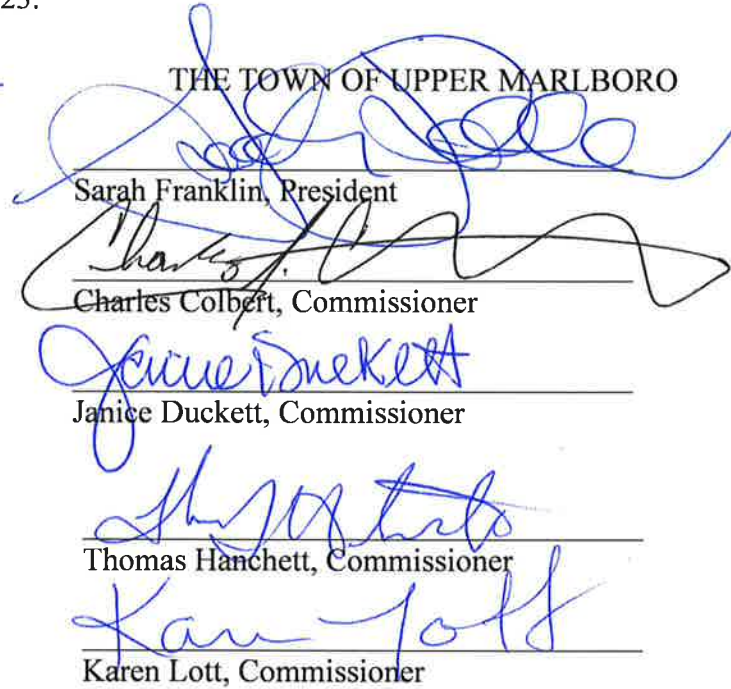 25.
THE TOWN OF UPPER MARLBORO
Sarah Franklin, President
Charles J. C
Charles Colbert, Commissioner
Janice Duckett
Janice Duckett, Commissioner
Thomas Hanchett, Commissioner
Karen Lott
Karen Lott, Commissioner